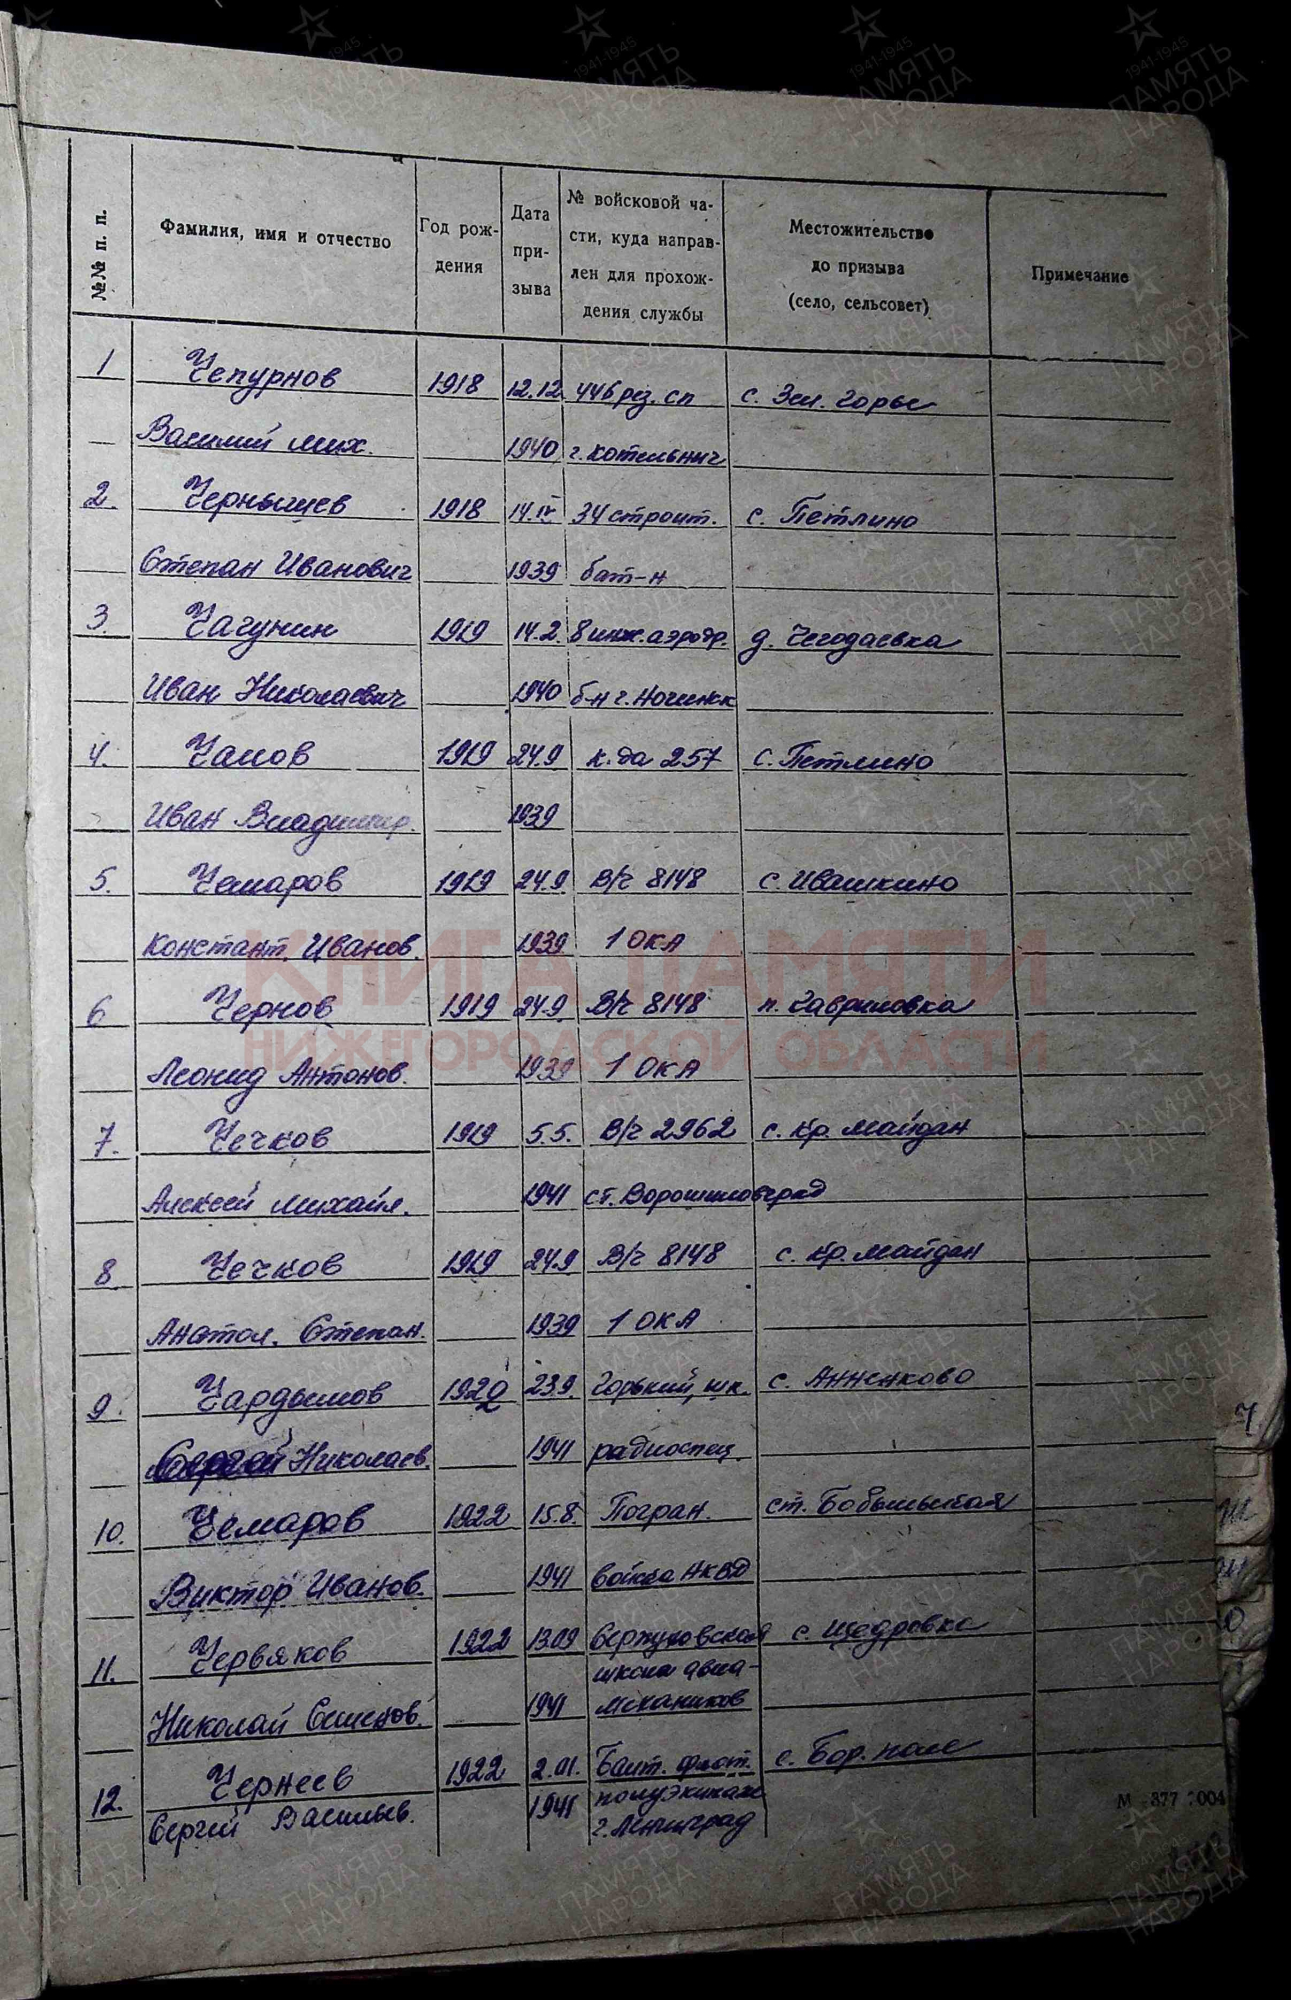 №№ п. п. Фамилия, имя и отчество Год рождения Дата призыва № войсковой части, куда направлен для прохождения службы Местожительство до призыва (село, сельсовет) Примечание
1 Чепурнов 1918 12.12 446 рез. сп с. Зел. Горы
Василий Мих. 1940 г. Котельнич
2. Чернышев 1918 14.IX 34 строит. с. Петлино
Степан Иванович 1939 бат-н
3. Чагунин 1919 14.2. 8 инж. аэродр. д. Чегодаевка
Иван Николаевич 1940 б-н г. Ногинск
4. Чамов 1919 24.9 к-да 257 с. Петлино
Иван Владимир. 1939
5. Чемаров 1919 24.9. В/ч 8148 с. Ивашкино
Констант. Иванов. 1939 1 ОКА
6 Чернов 1919 24.9 В/ч 8148 п. Гавриловка
Леонид Антонов. 1939 1 ОКА
7. Чечков 1919 5.5. В/ч 2962 с. Кр. Майдан
Алексей Михайл. 1941 ст. Ворошиловград
8. Чечков 1919 24.9 В/ч 8148 с. Кр. Майдан
Анатол. Степан. 1939 1 ОКА
9. Чардымов 1922 23.9. Горький, шк. с. Анненково
Сергей Николаев. 1941 радиоспец.
10. Чемаров 1922 15.8. Погран. ст. Бобыльская
Виктор Иванов. 1941 войска НКВД
11. Червяков 1922 13.09 Серпуховская с. Щедровка
школа авиа-
Николай Семенов. 1941 механиков
12. Чернеев 1922 2.01. Балт. флот. с. Бор. поле
Сергей Васильев. 1941 полуэкипаж
г. Ленинград
М-377 :004
КНИГА ПАМЯТИ
НИЖЕГОРОДСКОЙ ОБЛАСТИ
1941-1945
ПАМЯТЬ
НАРОДА